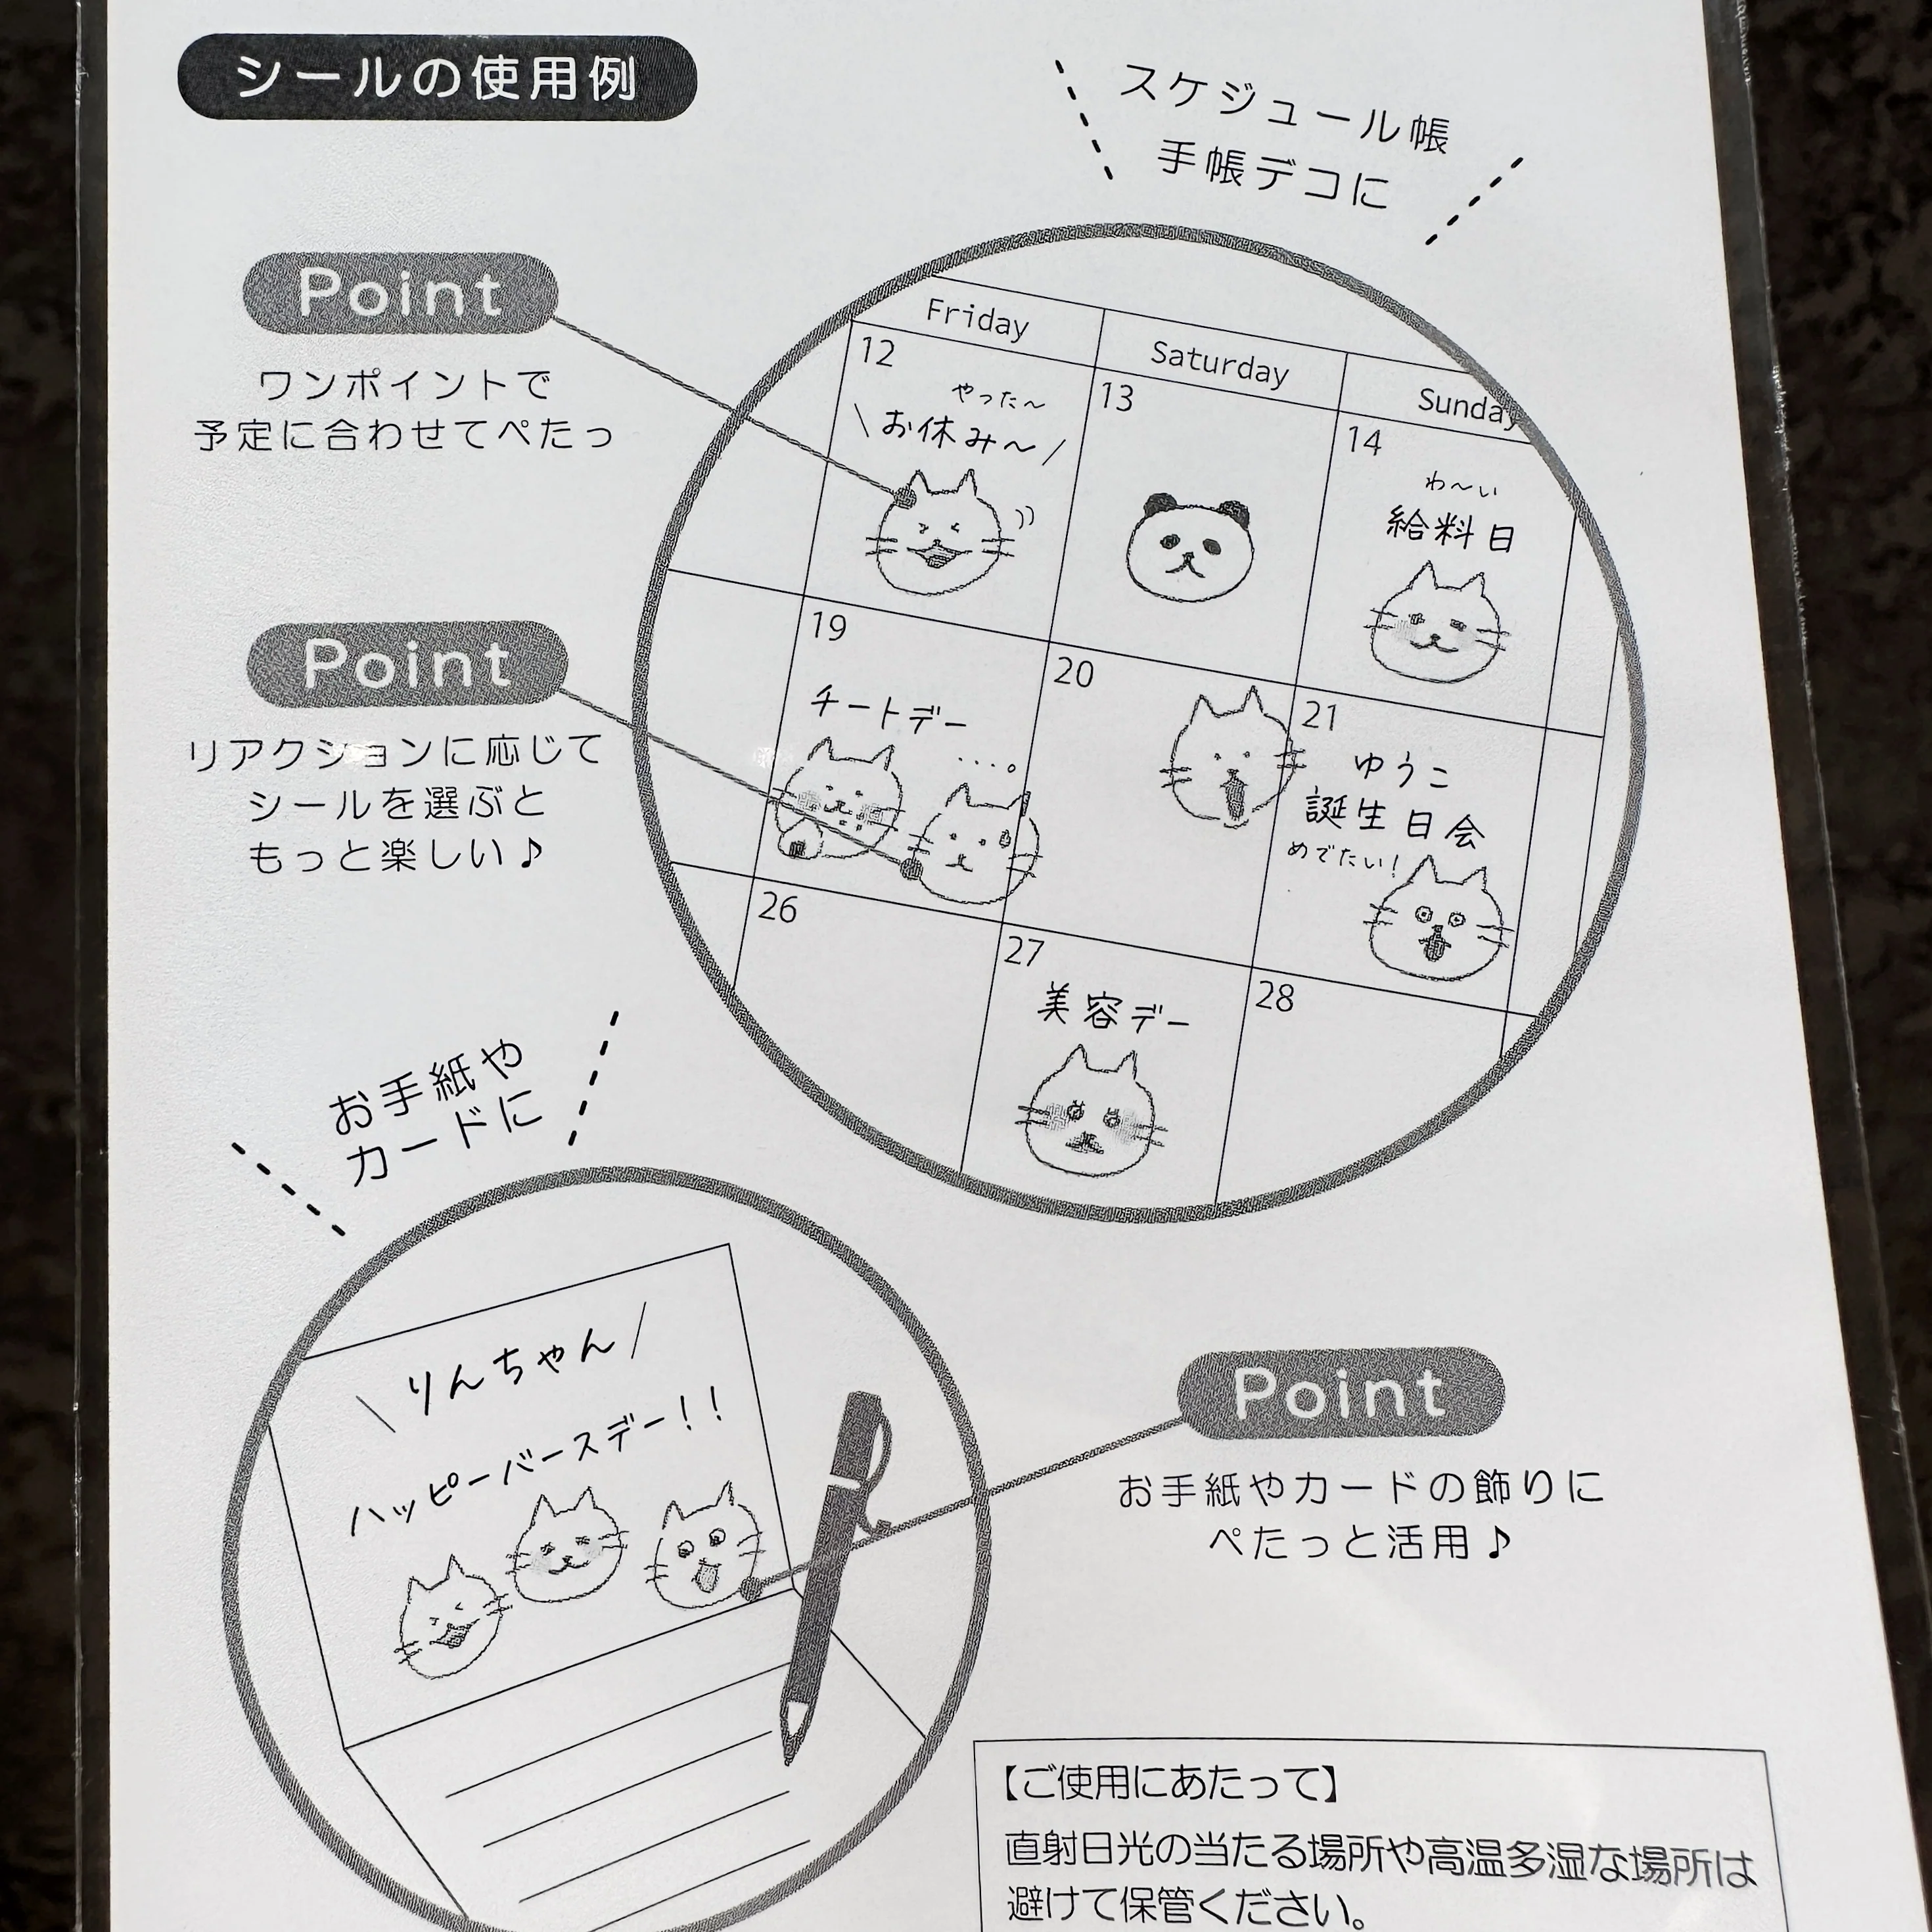 シールの使用例
スケジュール帳
手帳デコに
Point
ワンポイントで
予定に合わせてぺたっ
Friday
Saturday
Sunday
12
やった〜
\お休み〜/
13
14
わ〜い
給料日
Point
リアクションに応じて
シールを選ぶと
もっと楽しい♪
19
チートデー
...。
20
21
ゆうこ
誕生日会
めでたい!
26
27
美容デー
28
お手紙や
カードに
\りんちゃん/
ハッピーバースデー!!
Point
お手紙やカードの飾りに
ぺたっと活用♪
【ご使用にあたって】
直射日光の当たる場所や高温多湿な場所は
避けて保管ください。